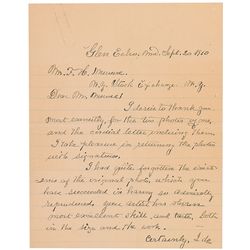 Glen Echo, Md. Sept. 20 1910
Mr. F. H.
N.Y. Stock Exchange. N.Y.
Dear Mr.
I desire to thank you
most earnestly, for the two photos of me,
and the cordial letter enclosing them.
I take pleasure in returning the photos
with signatures.
I had quite forgotten the
of the original photo, which you
have succeeded in having so admirably
reproduced. Your artist has shown
most excellent skill and taste, both
in the size and the work.
Certainly, I do